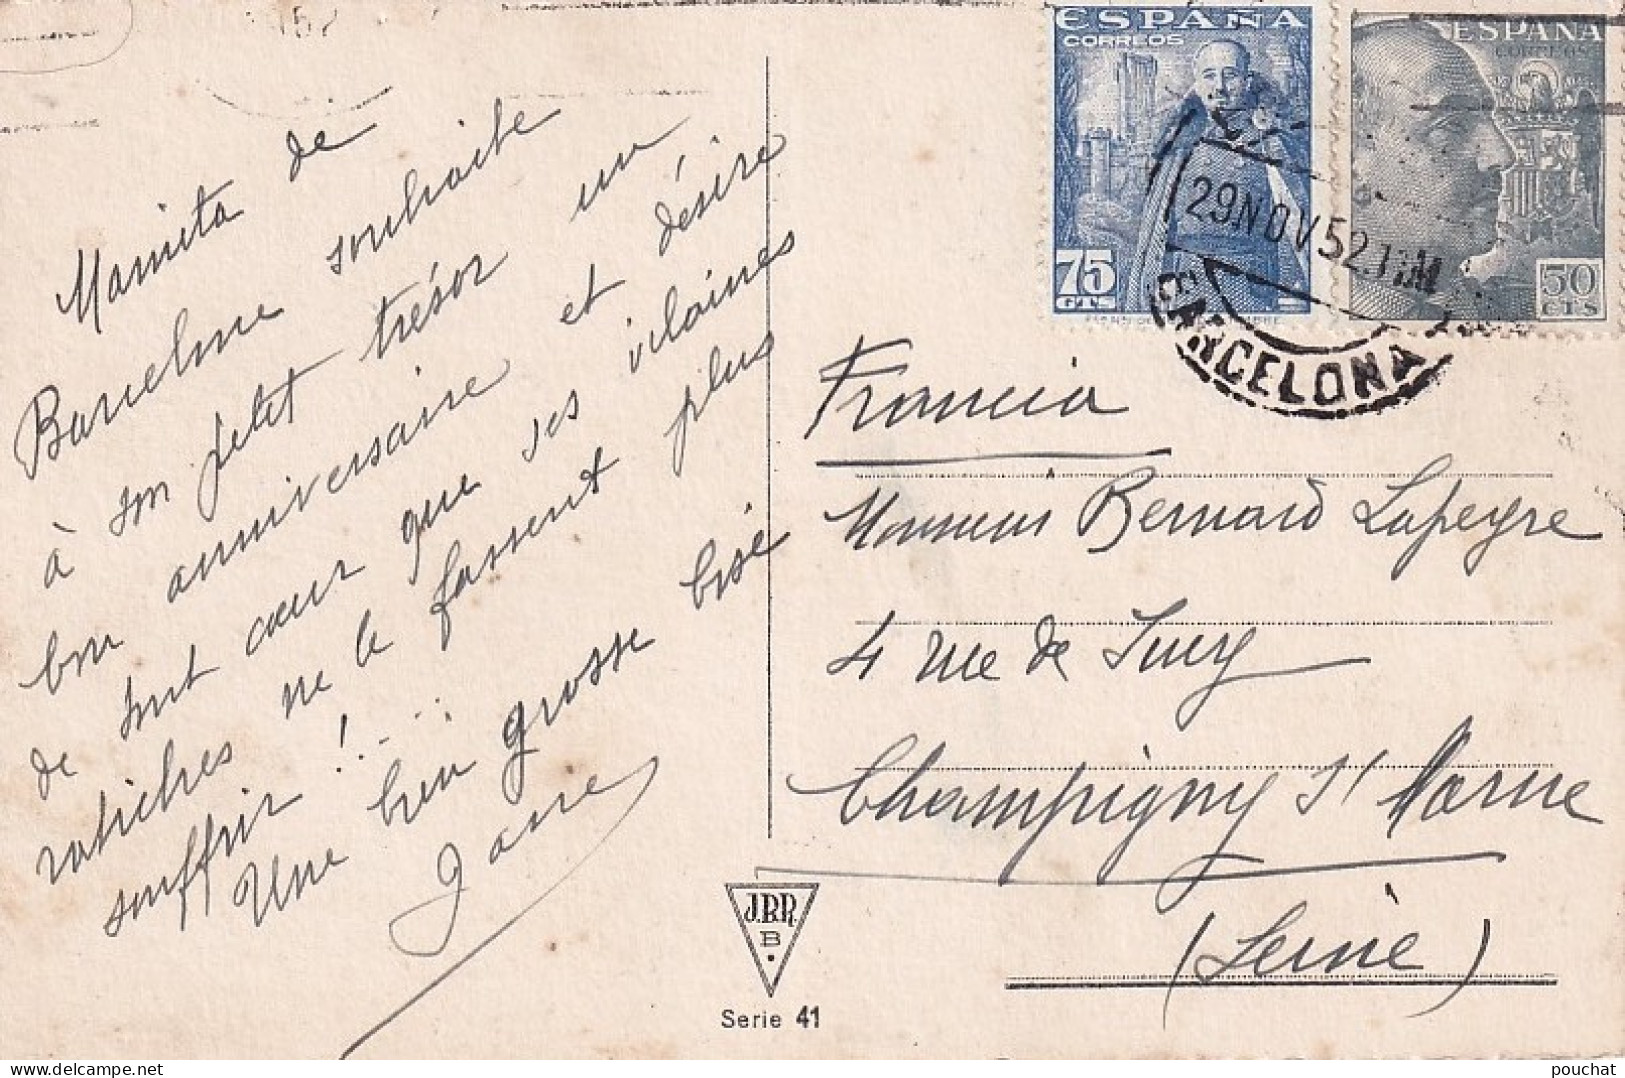 Mamita de
Barcelone souhaite
à son petit trésor un
bon anniversaire et désire
de tout cœur que ses vilaines
ne le fassent plus
souffrir !....
Une bien grosse bise
ESPAÑA
CORREOS
75
ESPAÑA
CORREOS
50
CTS
29 NOV 52
BARCELONA
Francia
Monsieur Bernard Lapeyre
4 rue de Sucy
Champigny s/ Marne
(Seine)
J.B.R.
B
Serie 41
pouchat